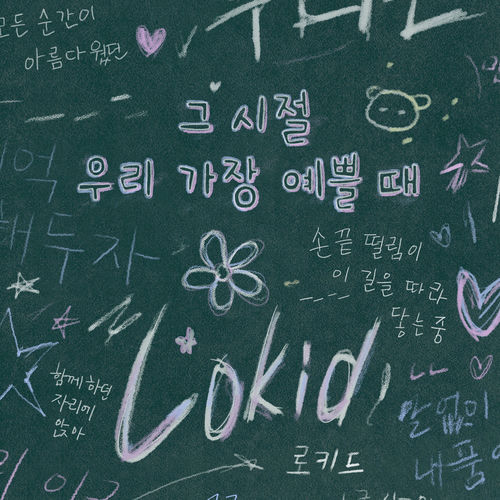 모든 순간이
아름다웠던
그 시절
우리 가장 예쁠 때
기억
해두자
손끝 떨림이
이 길을 따라
닿는 중
함께하던
자리에
앉아
Lokid
로키드
말 없이
내 품에